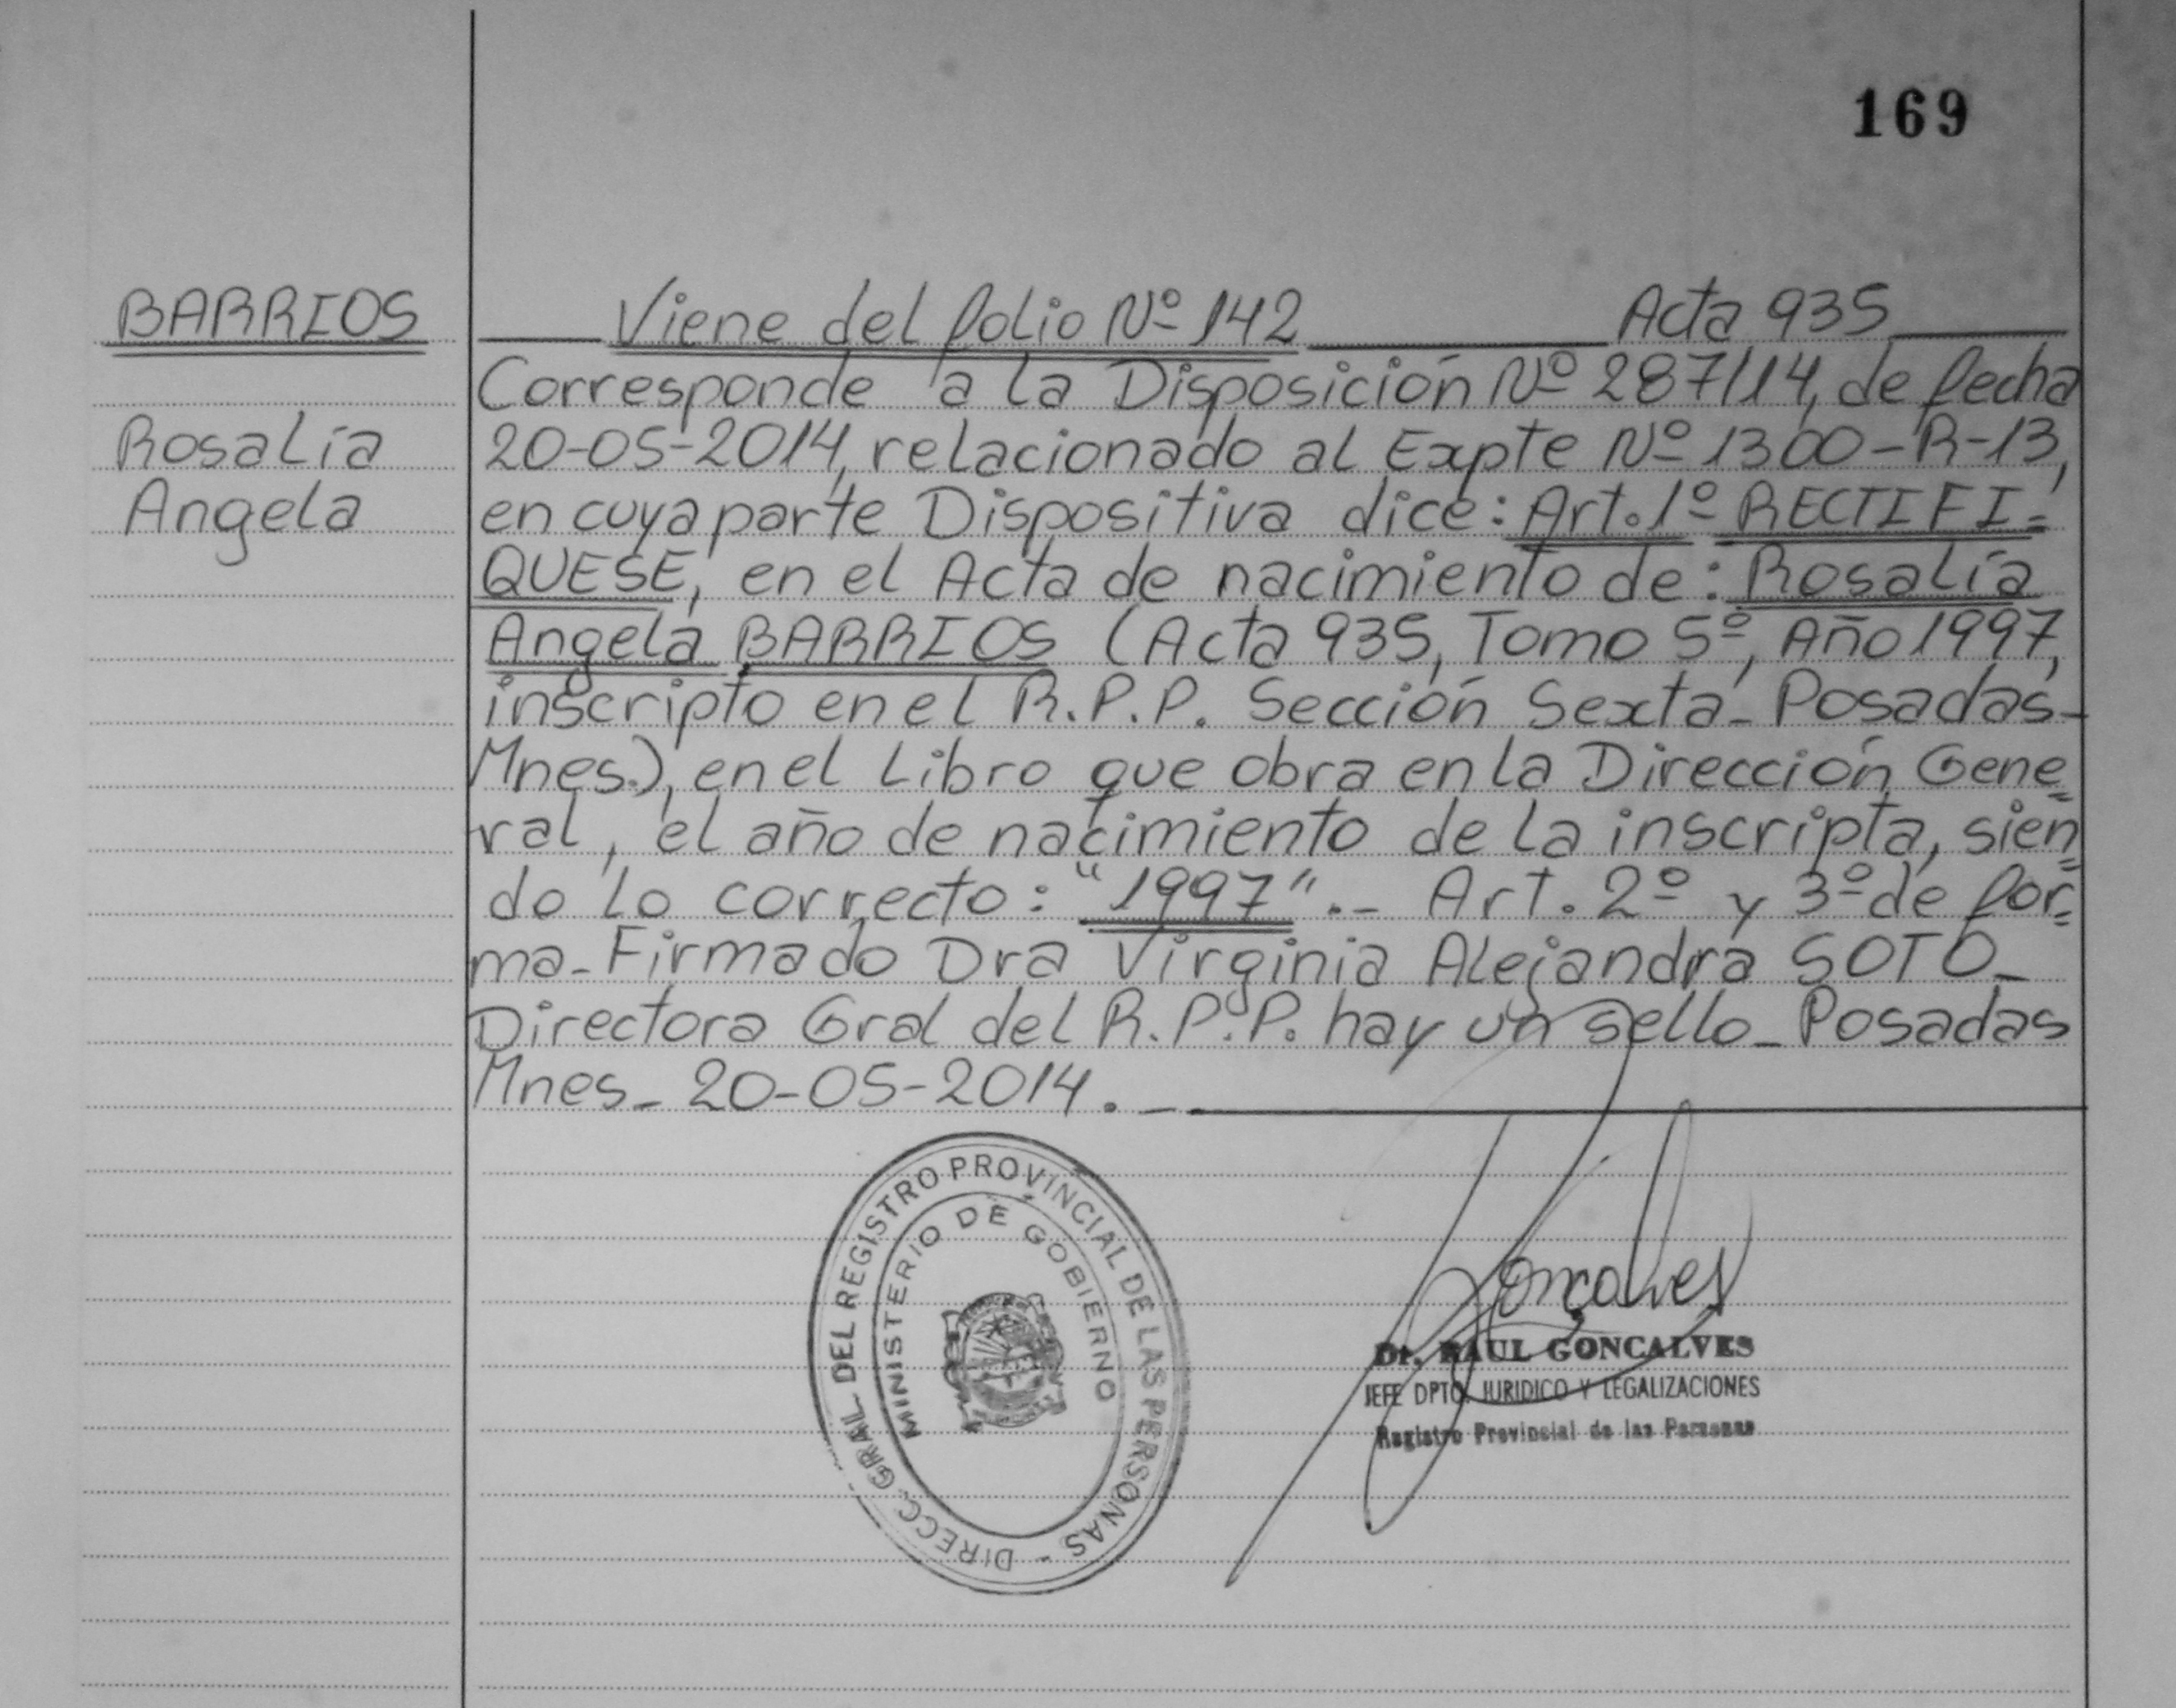 169
BARRIOS
Rosalía
Angela
Viene del folio Nº 142 Acta 935
Corresponde a la Disposición Nº 287/14, de fecha
20-05-2014, relacionado al Expte Nº 1300-R-13,
en cuya parte Dispositiva dice: Art. 1º RECTIFI=
QUESE, en el Acta de nacimiento de: Rosalía
Angela BARRIOS (Acta 935, Tomo 5º, Año 1997,
inscripto en el R.P.P. Sección Sexta- Posadas-
Mnes.), en el Libro que obra en la Dirección Gene=
ral, el año de nacimiento de la inscripta, sien=
do lo correcto: "1997".- Art. 2º y 3º de for=
ma- Firmado Dra Virginia Alejandra SOTO-
Directora Gral del R.P.P. hay un sello- Posadas
Mnes- 20-05-2014.-
DIRECC. GRAL. DEL REGISTRO PROVINCIAL DE LAS PERSONAS -
MINISTERIO DE GOBIERNO
Gonçalves
Dr. RAUL GONCALVES
JEFE DPTO. JURIDICO Y LEGALIZACIONES
Registro Provincial de las Personas